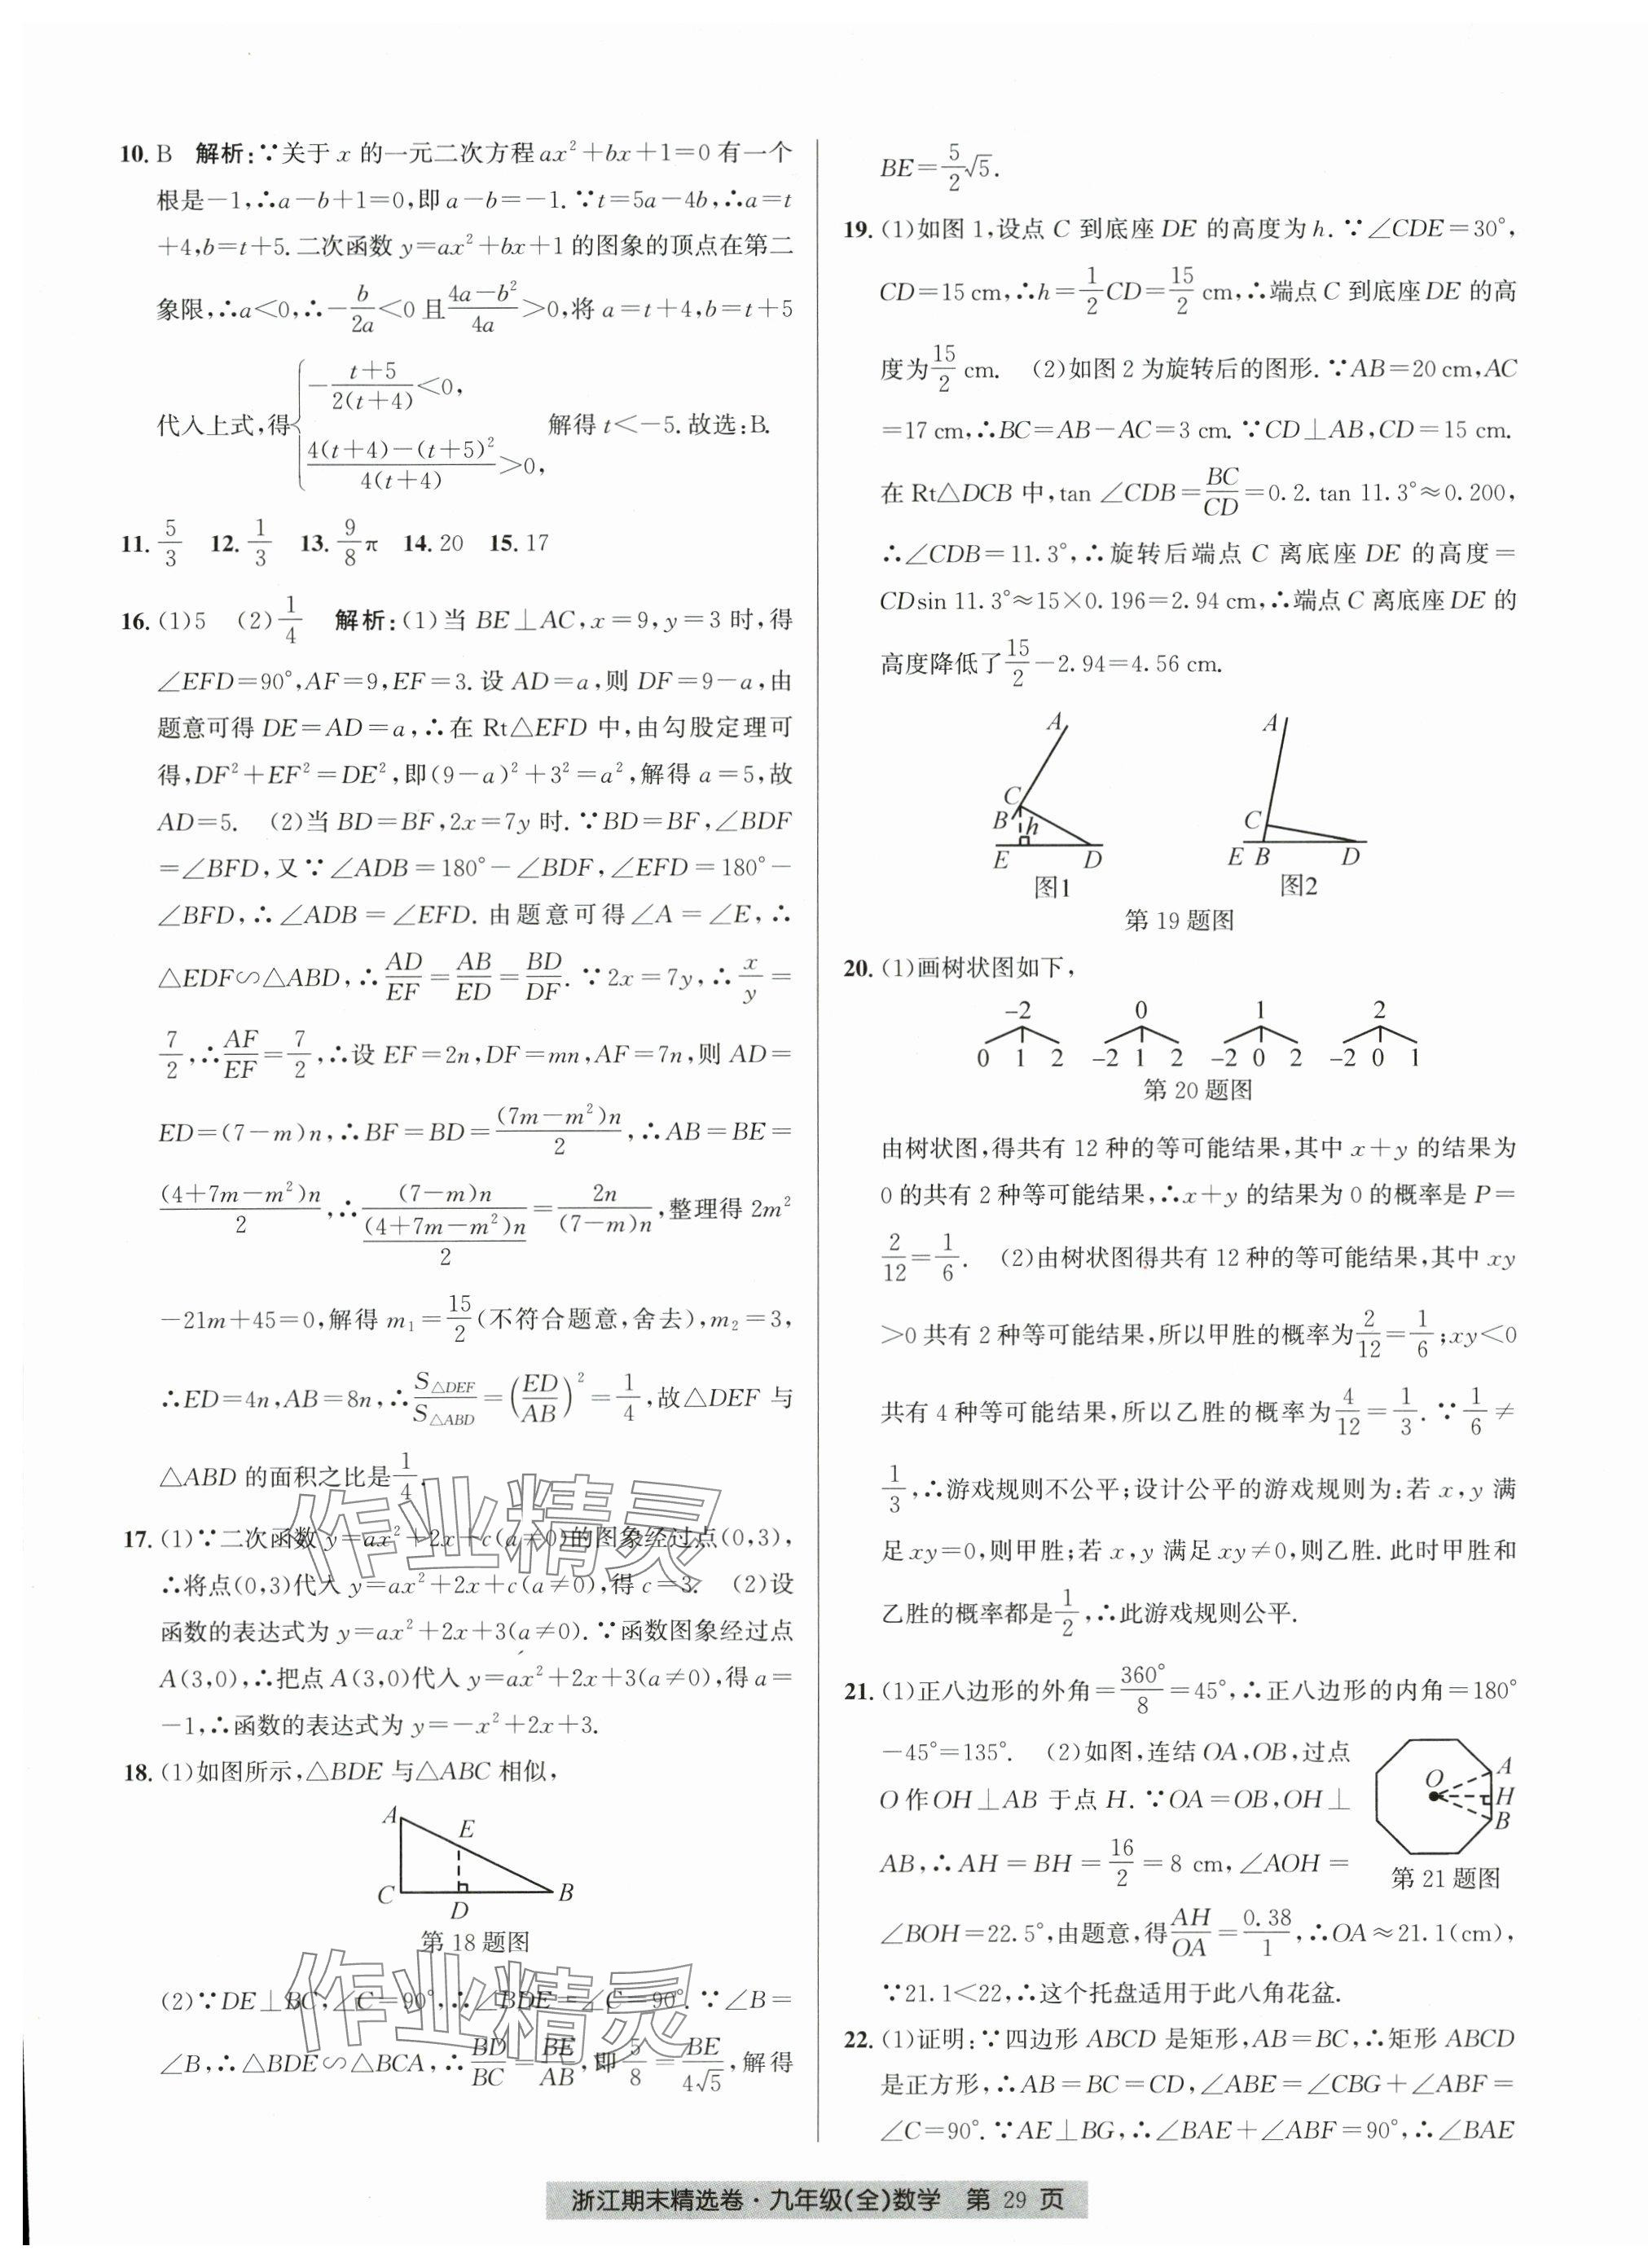 10. B 解析:∵关于 x 的一元二次方程 ax²+bx+1=0 有一个
根是-1,∴a-b+1=0,即 a-b=-1. ∵t=5a-4b,∴a=t
+4,b=t+5. 二次函数 y=ax²+bx+1 的图象的顶点在第二
象限,∴a<0,∴-b/2a<0 且(4a-b²)/4a>0,将 a=t+4,b=t+5
代入上式,得{-(t+5)/2(t+4)<0, [4(t+4)-(t+5)²]/4(t+4)>0, 解得 t<-5. 故选:B.
11. 5/3 12. 1/3 13. 9/8 π 14. 20 15. 17
16. (1)5 (2)1/4 解析:(1)当 BE⊥AC,x=9,y=3 时,得
∠EFD=90°,AF=9,EF=3. 设 AD=a,则 DF=9-a,由
题意可得 DE=AD=a,∴在 Rt△EFD 中,由勾股定理可
得,DF²+EF²=DE²,即(9-a)²+3²=a²,解得 a=5,故
AD=5. (2)当 BD=BF,2x=7y 时. ∵BD=BF,∠BDF
=∠BFD,又∵∠ADB=180°-∠BDF,∠EFD=180°-
∠BFD,∴∠ADB=∠EFD. 由题意可得∠A=∠E,∴
△EDF∽△ABD,∴AD/EF=AB/ED=BD/DF. ∵2x=7y,∴x/y=
7/2,∴AF/EF=7/2,∴设 EF=2n,DF=mn,AF=7n,则 AD=
ED=(7-m)n,∴BF=BD=(7m-m²)n/2,∴AB=BE=
(4+7m-m²)n/2,∴(7-m)n/[(4+7m-m²)n/2]=2n/(7-m)n,整理得 2m²
-21m+45=0,解得 m₁=15/2(不符合题意,舍去),m₂=3,
∴ED=4n,AB=8n,∴S△DEF/S△ABD=(ED/AB)²=1/4,故△DEF 与
△ABD 的面积之比是1/4.
17. (1)∵二次函数 y=ax²+2x+c(a≠0)的图象经过点(0,3),
∴将点(0,3)代入 y=ax²+2x+c(a≠0),得 c=3. (2)设
函数的表达式为 y=ax²+2x+3(a≠0). ∵函数图象经过点
A(3,0),∴把点 A(3,0)代入 y=ax²+2x+3(a≠0),得 a=
-1,∴函数的表达式为 y=-x²+2x+3.
18. (1)如图所示,△BDE 与△ABC 相似,
A
E
C
D
B
第 18 题图
(2)∵DE⊥BC,∠C=90°,∴∠BDE=∠C=90°. ∵∠B=
∠B,∴△BDE∽△BCA,∴BD/BC=BE/AB,即5/8=BE/4√5,解得
作业精灵
作业精灵
BE=5/2√5.
19. (1)如图 1,设点 C 到底座 DE 的高度为 h. ∵∠CDE=30°,
CD=15 cm,∴h=1/2CD=15/2 cm,∴端点 C 到底座 DE 的高
度为15/2 cm. (2)如图 2 为旋转后的图形. ∵AB=20 cm,AC
=17 cm,∴BC=AB-AC=3 cm. ∵CD⊥AB,CD=15 cm.
在 Rt△DCB 中,tan ∠CDB=BC/CD=0.2. tan 11.3°≈0.200,
∴∠CDB=11.3°,∴旋转后端点 C 离底座 DE 的高度=
CDsin 11.3°≈15×0.196=2.94 cm,∴端点 C 离底座 DE 的
高度降低了15/2-2.94=4.56 cm.
A
C
B h
E D
图1
A
C
E B D
图2
第 19 题图
20. (1)画树状图如下,
-2 0 1 2
0 1 2 -2 1 2 -2 0 2 -2 0 1
第 20 题图
由树状图,得共有 12 种的等可能结果,其中 x+y 的结果为
0 的共有 2 种等可能结果,∴x+y 的结果为 0 的概率是 P=
2/12=1/6. (2)由树状图得共有 12 种的等可能结果,其中 xy
>0 共有 2 种等可能结果,所以甲胜的概率为2/12=1/6;xy<0
共有 4 种等可能结果,所以乙胜的概率为4/12=1/3. ∵1/6≠
1/3,∴游戏规则不公平;设计公平的游戏规则为:若 x,y 满
足 xy=0,则甲胜;若 x,y 满足 xy≠0,则乙胜. 此时甲胜和
乙胜的概率都是1/2,∴此游戏规则公平.
21. (1)正八边形的外角=360°/8=45°,∴正八边形的内角=180°
-45°=135°. (2)如图,连结 OA,OB,过点
O 作 OH⊥AB 于点 H. ∵OA=OB,OH⊥
AB,∴AH=BH=16/2=8 cm,∠AOH=
O
A
H
B
第 21 题图
∠BOH=22.5°,由题意,得AH/OA=0.38/1,∴OA≈21.1(cm),
∵21.1<22,∴这个托盘适用于此八角花盆.
22. (1)证明:∵四边形 ABCD 是矩形,AB=BC,∴矩形 ABCD
是正方形,∴AB=BC=CD,∠ABE=∠CBG+∠ABF=
∠C=90°. ∵AE⊥BG,∴∠BAE+∠ABF=90°,∴∠BAE
浙江期末精选卷·九年级(全)数学 第 29 页